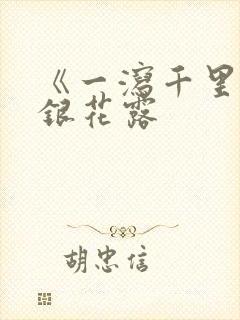 《一泻千里
银花露
胡忠信